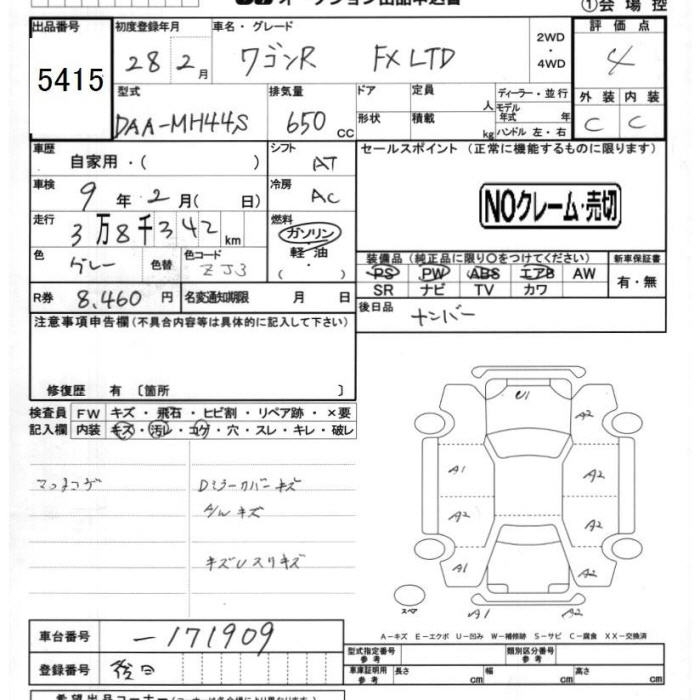 オークション出品申込書
①会場控
出品番号 初度登録年月 車名・グレード 2WD・4WD 評価点
5415 28 2月 ワゴンR FX LTD 4
型式 排気量 ドア 定員 人 ディーラー・並行 外装 内装
DAA-MH44S 650 cc 形状 積載 kg モデル年式 年 ハンドル 左・右 C C
車歴 自家用・( ) シフト AT セールスポイント (正常に機能するものに限ります)
車検 9年2月( 日) 冷房 AC NOクレーム・売切
走行 3万8千342km 燃料 ガソリン・軽油・( )
色 グレー 色替 色コード ZJ3
装備品 (純正品に限り○をつけてください) 新車保証書
PS PW ABS エアB AW 有・無
SR ナビ TV カワ
R券 8,460円 名変通知期限 月 日 後日品 ナンバー
注意事項申告欄(不具合内容等は具体的に記入して下さい)
修復歴 有 〔箇所 〕
検査員記入欄 FW キズ・飛石・ヒビ割・リペア跡・×要
内装 キズ・汚レ・コゲ・穴・スレ・キレ・破レ
マットコゲ Dミラーカバーキズ
A/Wキズ
キズUスリキズ
U1
A2
A1 A2
A2 A2
A1 A2
スペア A1 A2
A-キズ E-エクボ U-凹み W-補修跡 S-サビ C-腐食 XX-交換済
車台番号 -171909
型式指定番号 参考 類別区分番号 参考
登録番号 後日 車庫証明用 参考 長さ cm 幅 cm 高さ cm
希望出品コーナー